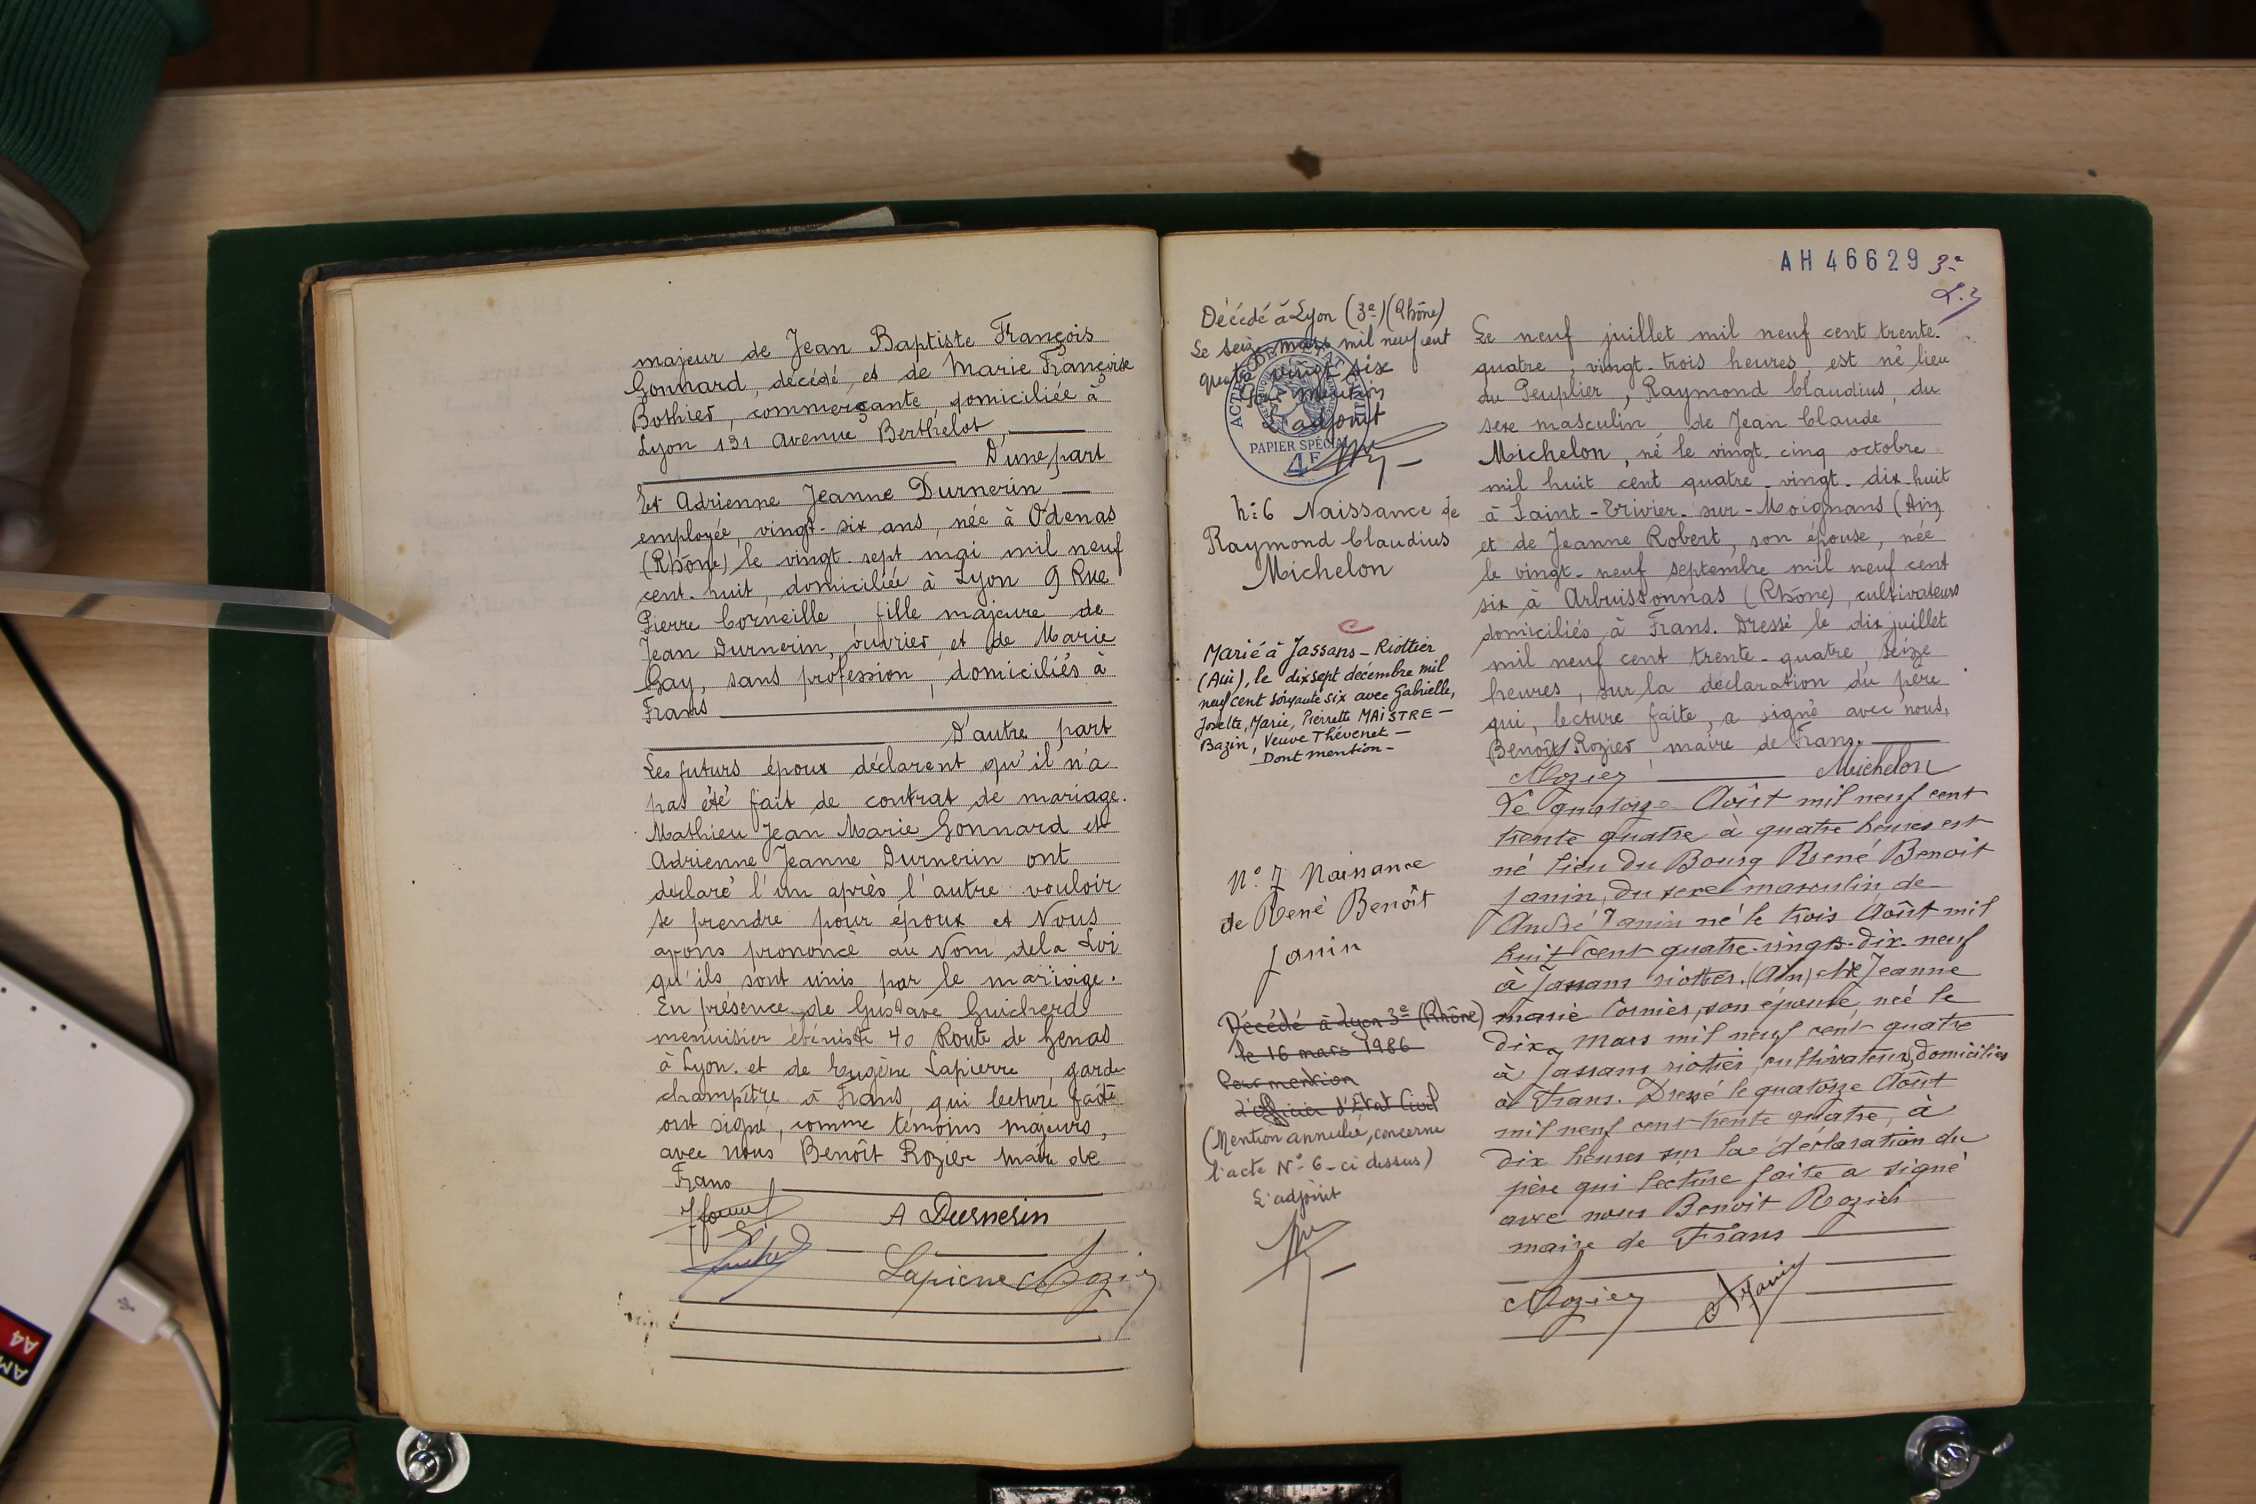 majeur de Jean Baptiste François
Gonnard, décédé, et de Marie Françoise
Bothier, commerçante, domiciliée à
Lyon 131 avenue Berthelot,
D'une part
Et Adrienne Jeanne Durnerin
employée, vingt-six ans, née à Odenas
(Rhône) le vingt-sept mai mil neuf
cent-huit, domiciliée à Lyon 9 Rue
Pierre Corneille, fille majeure de
Jean Durnerin, ouvrier, et de Marie
Gay, sans profession, domiciliés à
Frans
D'autre part
Les futurs époux déclarent qu'il n'a
pas été fait de contrat de mariage.
Mathieu Jean Marie Gonnard et
Adrienne Jeanne Durnerin ont
déclaré l'un après l'autre vouloir
se prendre pour époux et Nous
avons prononcé au Nom de la Loi
qu'ils sont unis par le mariage.
En présence de Gustave Guicherd
menuisier ébéniste 40 Route de Genas
à Lyon. et de Eugène Lapierre, garde
champêtre à Frans, qui lecture faite
ont signé, comme témoins majeurs,
avec nous Benoît Rozier maire de
Frans
A Durnerin
Lapierre Rozier
AH 46629 3e
Décédé à Lyon (3e) (Rhône)
Le seize mars mil neuf cent
quatre vingt six
Pour mention
L'adjoint
ACTES DE L'ETAT CIVIL
PAPIER SPÉCIAL
4F
N: 6 Naissance de
Raymond Claudius
Michelon
Marié à Jassans-Riottier
(Ain), le dix sept décembre mil
neuf cent soixante six avec Gabrielle,
Josette, Marie, Pierrette MAISTRE-
Bazin, Veuve Thévenet-
Dont mention-
N° 7 Naissance
de René Benoît
Janin
Décédé à Lyon 3e (Rhône)
le 16 mars 1986
Pour mention
L'Officier d'Etat Civil
(Mention annulée, concerne
l'acte N° 6 - ci dessus)
L'adjoint
Le neuf juillet mil neuf cent trente-
quatre, vingt-trois heures, est né lieu
du Peuplier, Raymond Claudius, du
sexe masculin de Jean Claude
Michelon, né le vingt-cinq octobre
mil huit cent quatre-vingt-dix-huit
à Saint-Trivier-sur-Moignans (Ain)
et de Jeanne Robert, son épouse, née
le vingt-neuf septembre mil neuf cent
six à Arbuissonnas (Rhône), cultivateurs
domiciliés à Frans. Dressé le dix juillet
mil neuf cent trente-quatre, seize
heures, sur la déclaration du père
qui, lecture faite, a signé avec nous,
Benoît Rozier, maire de Frans.
Rozier Michelon
Le quatorze Août mil neuf cent
trente quatre à quatre heures est
né lieu du Bourg René Benoit
Janin, du sexe masculin, de
André Janin né le trois Août mil
huit cent quatre-vingt-dix-neuf
à Jassans riottier (Ain) et de Jeanne
marie Cornier, son épouse, née le
dix mars mil neuf cent quatre
à Jassans riottier, cultivateurs, domiciliés
à Frans. Dressé le quatorze Août
mil neuf cent trente quatre, à
dix heures sur la déclaration du
père qui lecture faite a signé
avec nous Benoit Rozier
maire de Frans
Rozier A Janin